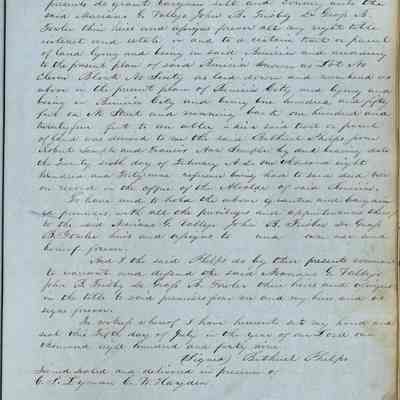 presents do grant bargain sell and convey unto the
said Mariano G. Vallejo John B. Frisby De Graf A.
Fowler their heirs and assigns forever all my right title
interest and estate in and to a certain tract or parcel
of land lying and being in said Benicia and according
to the present plan of said Benicia known as Lot No
Eleven Block No Sixty as laid down and numbered as
above in the present plan of Benicia City and lying and
being in Benicia City and being one hundred and fifty
feet on M Street and running back one hundred and
twentyfive feet to an alley which said tract or parcel
of land was deeded to me the said Bethuel Phelps from
Robert Semple and Frances Ann Semple by deed bearing date
the Twenty sixth day of February A.D. one thousand eight
hundred and Forty nine reference being had to said deed now
on record in the office of the Alcalde of said Benicia.
To have and to hold the above granted and bargain
ed premises with all the privileges and appurtenances thereof
to the said Mariano G. Vallejo John B. Frisbie De Graf
A. Fowler heirs and assigns to and own use and
benefit forever.
And I the said Phelps do by these presents covenant
to warrant and defend the said Mariano G. Vallejo
John B. Frisby De Graf A. Fowler their heirs and assigns
in the title to said premises from me and my heirs and as
signs forever.
In witness whereof I have hereunto set my hand and
seal this Fifth day of July in the year of our Lord one
thousand eight hundred and forty nine
(Signed) Bethuel Phelps
Signed sealed and delivered in presence of
C. P. Lyman C. W. Hayden